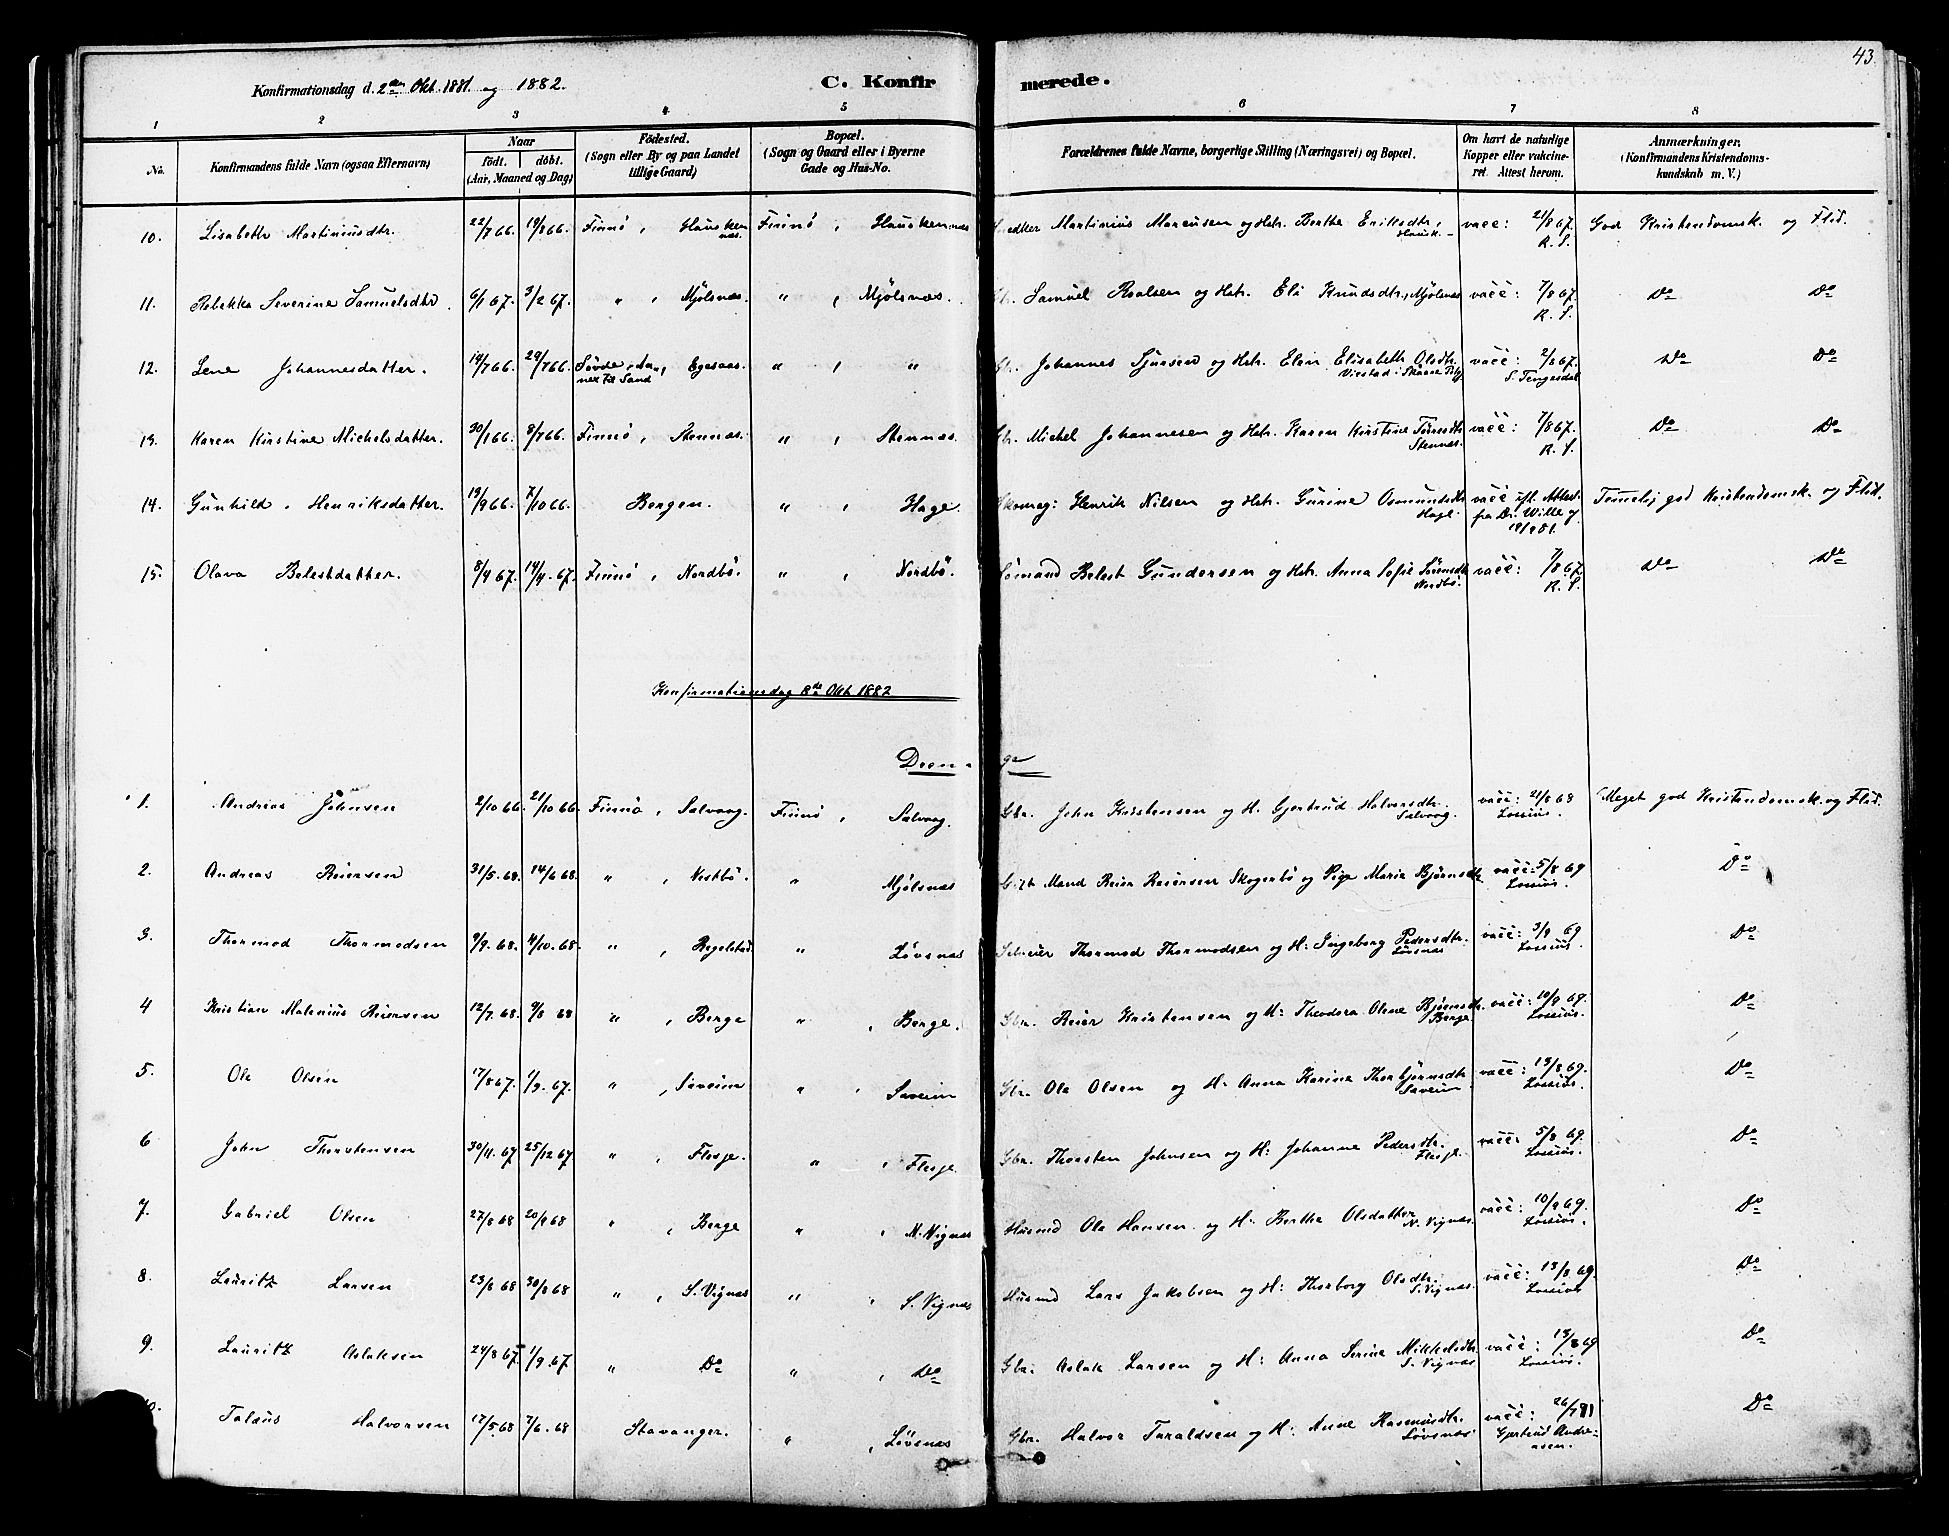 43.
Konfirmationsdag d. 2den Okt. 1881. og 1882.
C. Konfirmerede.
1 2 3 4 5 6 7 8
No.
Konfirmandens fulde Navn (ogsaa Efternavn)
Naar
födt. döbt.
(Aar, Maaned og Dag)
Födested.
(Sogn eller By og paa Landet
tillige Gaard)
Bopæl.
(Sogn og Gaard eller i Byerne
Gade og Hus-No.
Forældrenes fulde Navne, borgerlige Stilling (Næringsvei) og Bopæl.
Om havt de naturlige
Kopper eller vakcine-
ret. Attest herom.
Anmærkninger.
(Konfirmandens Kristendoms-
kundskab m. V.)
10. Lisabeth Martiniusdtr. 22/7 66. 19/8 66. Finnö, Hausken
næs. Finnö, Hauskennæs Martinius Marcusen og Hstr. Berthe Eriksdtr, vacc: 21/8 67. God Kristendomsk. og Flid.
Hausk. R. S.
11. Rebekka Severine Samuelsdtr. 6/1 67. 3/2 67. " , Mjölsnæs. " , Mjölsnæs. Gbr. Samuel Roalsen og Hstr. Eli Knudsdtr, Mjölsnæs vacc: 7/8 67. Do Do
R. S.
12. Lene Johannesdatter. 19/7 66. 29/7 66. Sövde, An-
nex til Sand, Egesaas. " , " Gbr. Johannes Sjursen og Hstr. Elen Elisabeth Olsdtr. vacc: 2/8 67. Do Do
Virstad i Skaare S. Tengesdal
13. Karen Kirstine Michelsdatter. 30/1 66. 8/7 66. Finnö, Stennæs. " , Stennæs. Gbr. Michel Johannesen og Hstr. Karen Kirstine Törresdtr. vacc: 7/8 67. Do Do
Stennæs. R. S.
14. Gunhild Henriksdatter. 19/9 66. 7/10 66. Bergen. " , Hage. Skomag: Henrik Nilsen og Hstr. Gurine Osmundsdtr vacc ifl. Attest Temelig god Kristendomsk. og Flid.
Hage. fra Dr. Wille
19/9 81.
15. Olava Belestdatter. 8/4 67. 14/4 67. Finnö, Nordbö. " , Nordbö. Sömand Belest Gundersen og Hstr. Anna Sofie Sörensdtr vacc: 7/8 67. Do Do
Nordbö. R. S.
Konfirmationsdag 8de Okt. 1882
Drenge
1. Andreas Johnsen 2/10 66. 21/10 66. Finnö, Salvaag. Finnö, Salvaag. Gbr. John Kristensen og H. Gjertrud Halvorsdtr. vacc: 21/8 68 Meget god Kristendomsk. og Flid.
Salvaag. Lossius.
2. Andreas Reiersen 31/5. 68. 14/6 68. " , Vestbö. " Mjölsnæs Mand Reier Reiersen Skogerbö og Pige Maria Björnsdtr. vacc: 5/8 69 Do
Lossius.
3. Thormod Thormodsen 9/9. 68. 4/10. 68. " , Regelstad " Lövsnæs Selveier Thormod Thormodsen og H: Ingeborg Pedersdtr. vacc: 3/9 69 Do
Lövsnæs Lossius.
4 Kristian Malenius Reiersen 12/7. 68. 9/8 68 " , Berge " , Berge. Gbr. Reier Kristensen og H: Theodora Oline Björnsdtr. vacc: 10/9 69. Do
Berge. Lossius.
5. Ole Olsen 17/8 67. 1/9. 67. " , Saveim " , Saveim Gbr. Ole Olsen og H. Anna Karina Thorbjörnsdtr vacc: 13/8 69. Do
Saveim Lossius.
6 John Thorstensen 30/11. 67 25/12 67 " , Flesje. " , Flesje Gbr. Thorsten Johnsen og H: Johanne Pedersdtr. vacc: 5/8 69. Do
Flesje. Lossius.
7. Gabriel Olsen 27/8 68 20/9 68 " , Berge " , N. Vignæs Husmd Ole Hansen og H: Berthe Olsdatter vacc: 10/9 69. Do
N. Vignæs. Lossius.
8. Lauritz Larsen 23/8 68 30/8 68 " , S. Vignæs " , S. Vignæs Husmd Lars Jakobsen og H: Thorborg Olsdtr. vacc: 13/8 69. Do
S. Vignæs. Lossius
9. Lauritz Aslaksen 24/8 67. 1/9. 67. " Do " , Do Gbr. Aslak Larsen og H: Anna Serine Mikkelsdtr vacc: 13/8 69 Do
S. Vignæs Lossius.
10. Taleus Halvorsen 17/5. 68 7/6. 68 Stavanger. " , Lövsnæs Gbr. Halvor Taraldsen og H: Anne Rasmusdtr. vacc: 26/7 81 Do
Lövsnæs Gjertrud Andre-
asen.